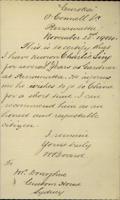 "Eureka"
O'Connell St
Parramatta
November 25th 1904.
This is to certify that
I have known Charles Sing
for several years as Gardener
at Parramatta. He informs
me he wishes to go to China
for a short time. I can
recommend him as an
honest and respectable
citizen.
I remain
Yours truly
To
Mr. Donohue
Custom House
Sydney